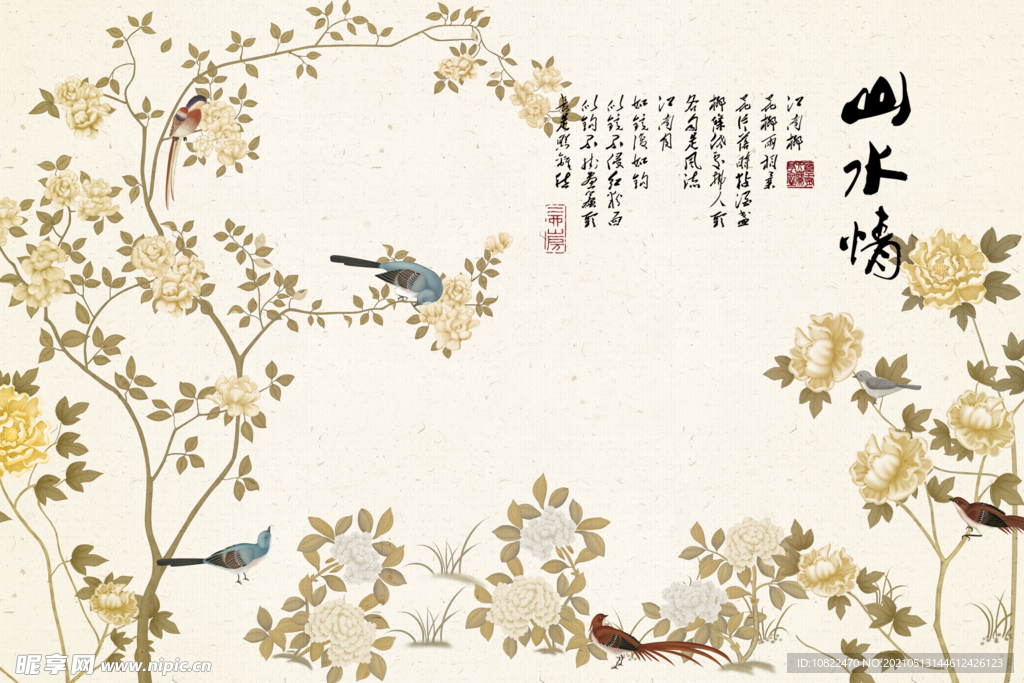 山水情
江南柳
花柳两相柔
花片落时黏酒盏
柳条低处拂人头
各自是风流
江南月
如镜复如钩
似镜不侵红粉面
似钩不挂画帘头
长是照离愁
昵享网 www.nipic.cn
ID:10822470 NO:20210513144612426123